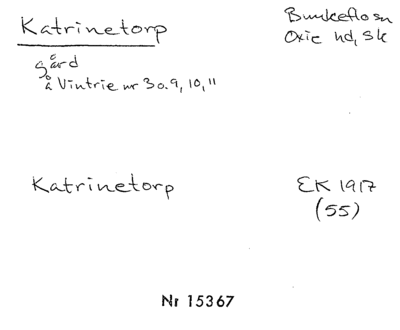 Katrinetorp
Bunkeflo sn
Oxie hd, Sk
gård
å Vintrie nr 3 o. 9, 10, 11
Katrinetorp
EK 1917
(55)
Nr 15367